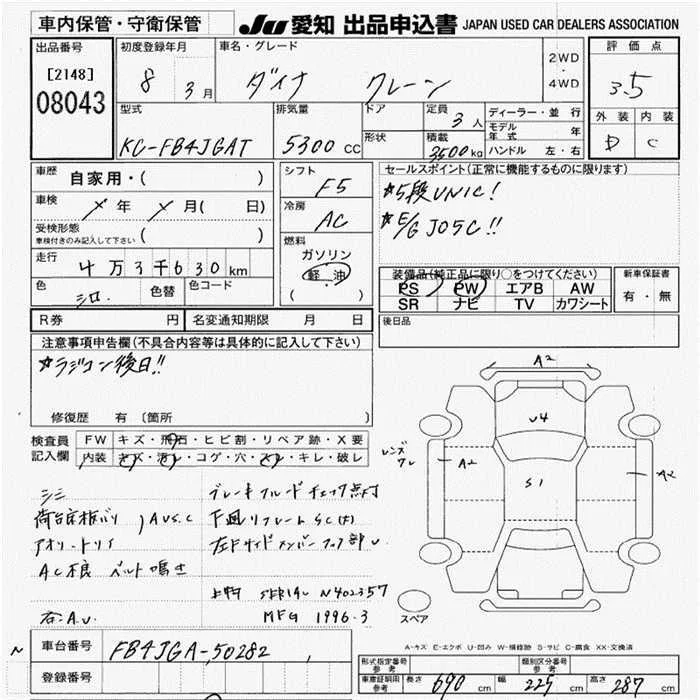 車内保管・守衛保管
JU 愛知 出品申込書 JAPAN USED CAR DEALERS ASSOCIATION
出品番号
[2148]
08043
初度登録年月
8 3月
車名・グレード
ダイナ クレーン
2WD
・
4WD
評価点
3.5
外装 内装
D C
型式
KC-FB4JGAT
排気量
5300 CC
ドア
形状
定員
3人
積載
3500kg
ディーラー・並行
モデル年式 年
ハンドル 左・右
車歴
自家用・( )
車検
年 月( 日)
受検形態
車検付きのみ記入して下さい ( )
走行
4万3千630km
色
シロ
色替
色コード
シフト
F5
冷房
AC
燃料
ガソリン
軽・油
( )
セールスポイント(正常に機能するものに限ります)
☆5段UNIC!
☆E/G J05C!!
装備品(純正品に限り○をつけてください)
PS PW エアB AW
SR ナビ TV カワシート
新車保証書
有・無
R券 円
名変通知期限 月 日
後日品
注意事項申告欄(不具合内容等は具体的に記入して下さい)
☆ラジコン後日!!
修復歴 有〔箇所
検査員記入欄
FW キズ・飛石・ヒビ割・リペア跡・X要
内装 キズ・汚レ・コゲ・穴・スレ・キレ・破レ
シミ
荷台床板バリ
アオリ・トリイ
AUS.C
AC不良 ベルト鳴き
右A.U.
ブレーキフルードチェック点灯
下廻リフレームSC(大)
上物 SERIAL N402357
MFG 1996.3
A2
U4
レンズワレ
A2
S1
A2
スペア
A-キズ E-エクボ U-凹み W-補修跡 S-サビ C-腐食 XX-交換済
車台番号
FB4JGA-50282
登録番号
型式指定番号
参考
類別区分番号
参考
車庫証明用
参考
長さ 690 cm
幅 225 cm
高さ 287 cm